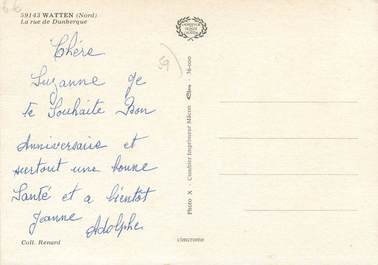 59143 WATTEN (Nord)
La rue de Dunkerque
Chère
Suzanne Je
te Souhaite Bon
Anniversaire et
surtout une bonne
Santé et a bientot
Jeanne Adolphe
Coll. Renard
Photo X Combier Imprimeur Mâcon
cimcrome
59